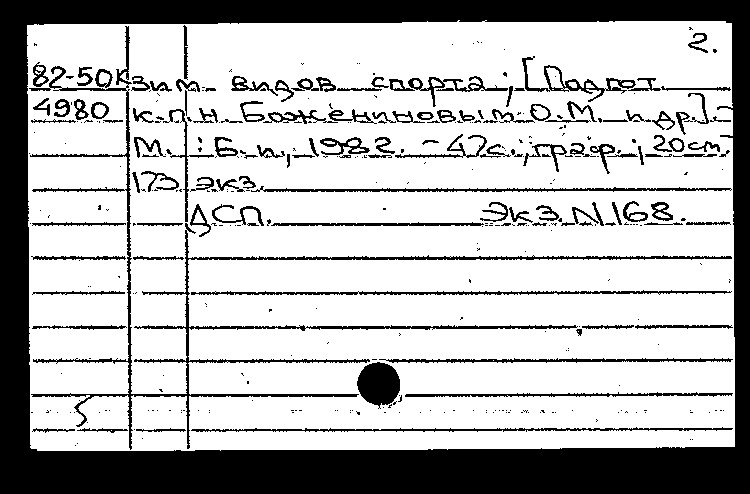 2.
82-50к зим. видов спорта ; [Подгот.
4980 к.п.н. Божениновым О.М. и др.]. -
М. : Б. и., 1982. - 47с., граф. ; 20см.
173 экз.
ДСП. Экз. N 168.